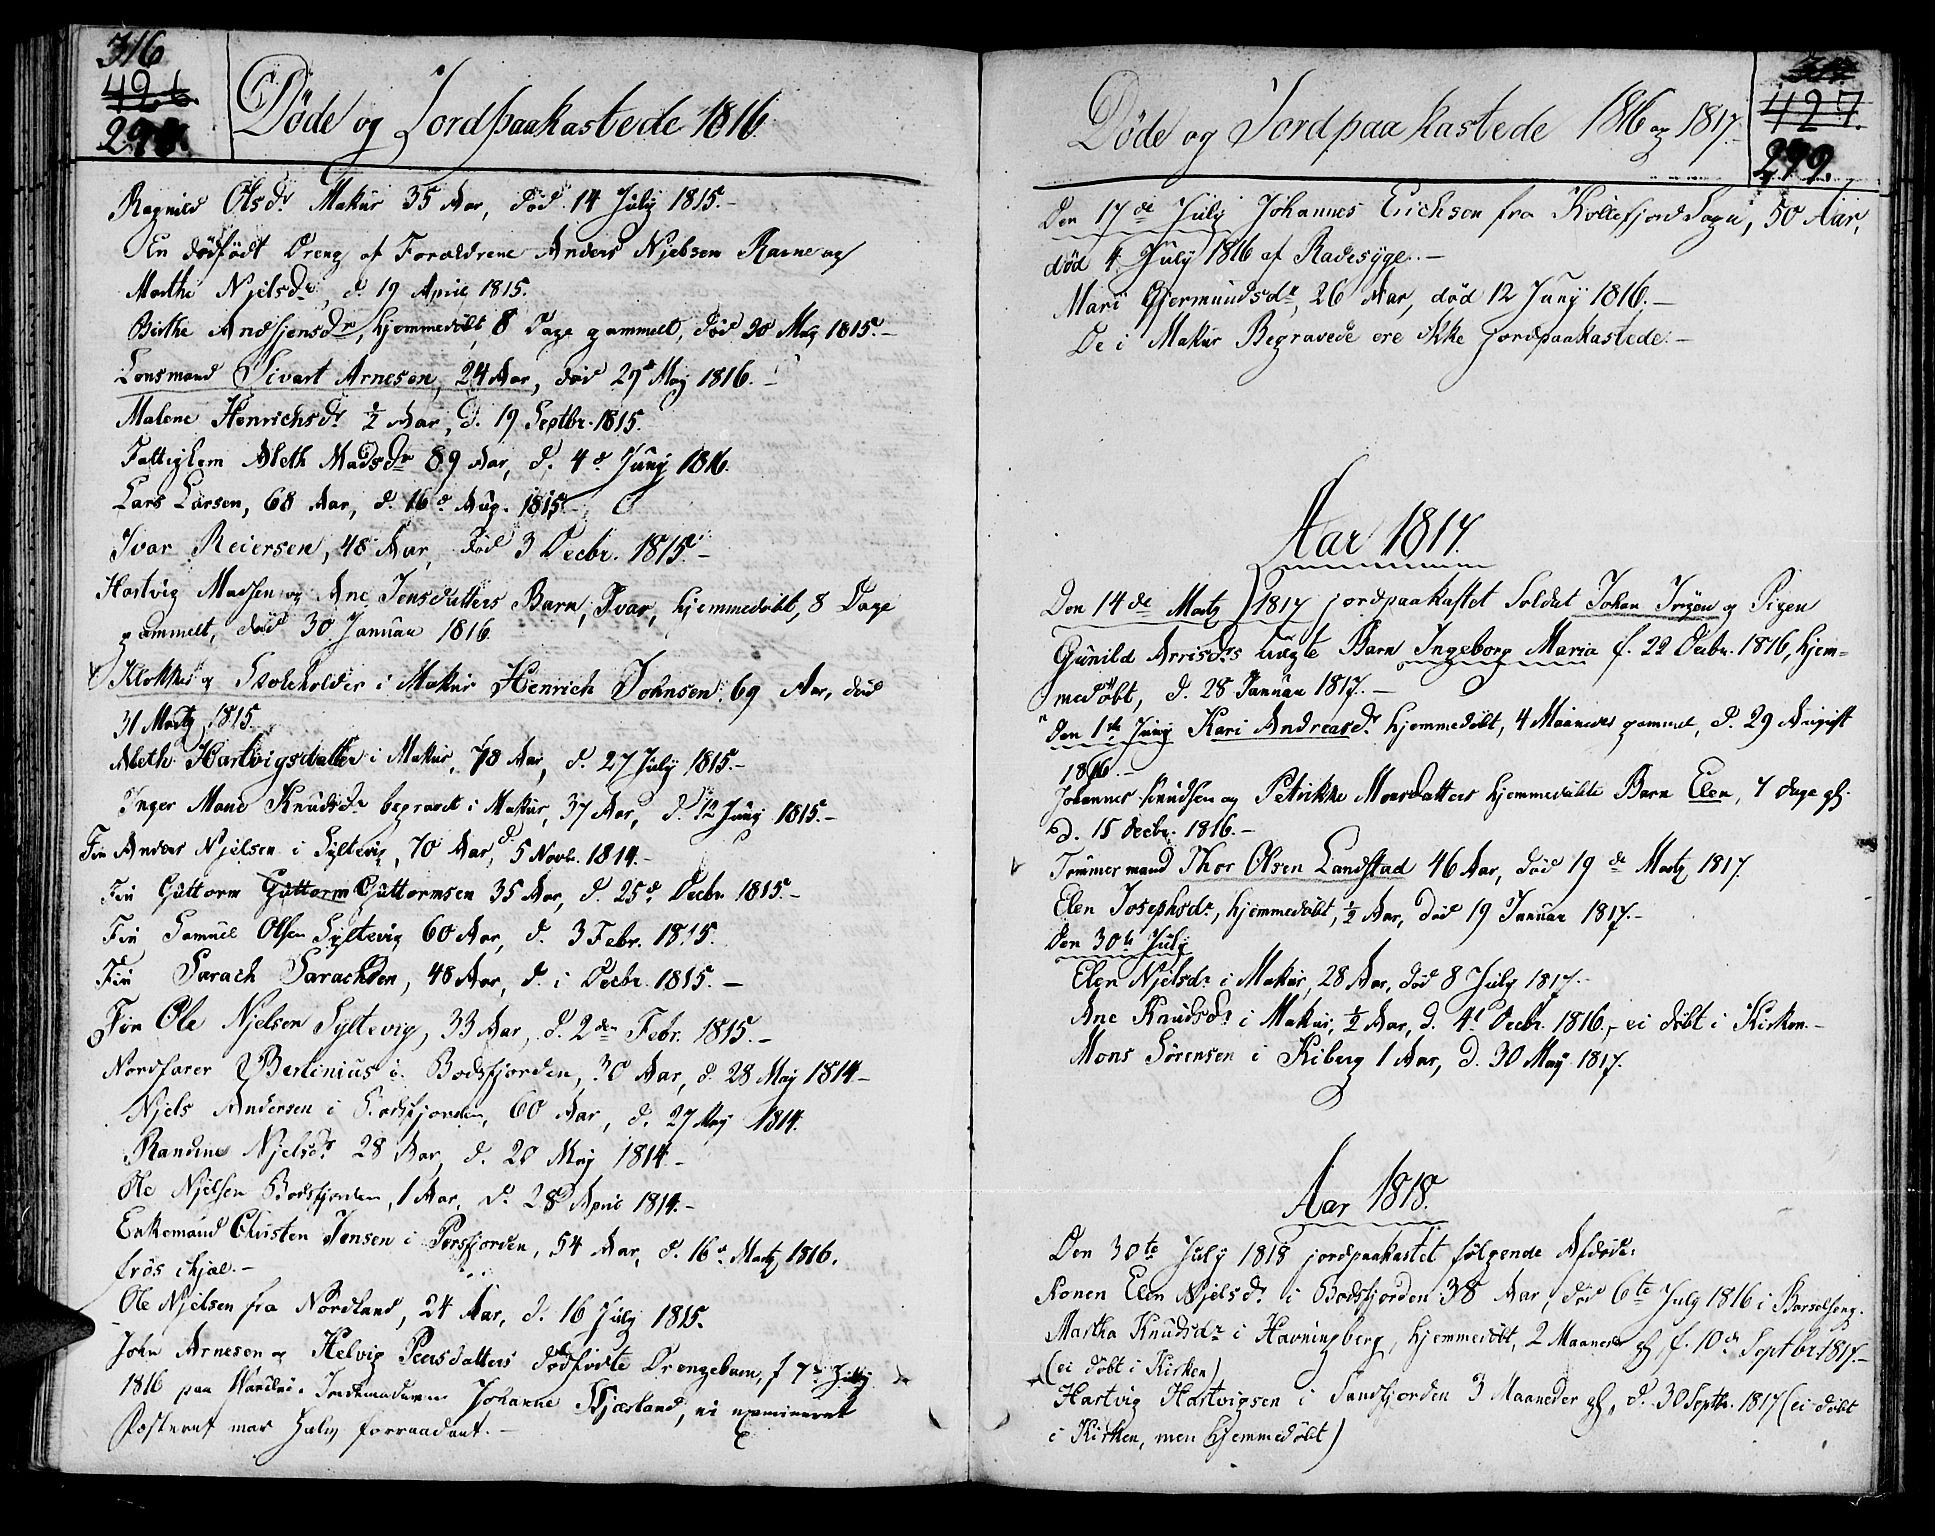 316
426.
298.
Døde og Jordpaakastede 1816
Ragnild Olsdr. Makur 35 Aar, død 14 July 1815.-
En dødfødt Dreng af Forældrene Anders Njelsen Ravne og
Marthe Njelsdr, d. 19 April 1815.
Birthe Andersdr, hjemmedøbt, 8 Dage gammelt, død 20 May 1815.-
Lensmand Sivart Arnesen, 24 Aar, død 29d May 1816.-
Malene Henrichsdr ½ Aar, d. 19 Septbr. 1815.
Fattiglem Aleth Madsdr 89 Aar, d. 4d Juny 1816.
Lars Larsen, 68 Aar, d. 16d Aug. 1815.-
Ivar Reiersen, 48 Aar, død 3 Decbr. 1815.-
Hartvig Madsen og Ane Jensdatters Barn, Ivar, hjemmedøbt, 8 Dage
gammelt, død 30 Januar 1816
Klokker og Skoleholder i Makur Henrich Johnsen, 69 Aar, død
31 Martz 1815.
Aleth Hartvigsdatter i Makur, 78 Aar, d. 27 July 1815.-
Inger Mane Knudsdr begravet i Makur, 37 Aar, d. 12 Juny 1815.-
Fin Anders Njelsen i Syltevig, 70 Aar, d. 5 Novb. 1814.-
Fin Guttorm Guttorm Guttormsen 35 Aar, d. 25d Decbr 1815.-
Fin Samuel Olsen Syltevig 60 Aar, d. 3 Febr. 1815.
Fin Sarach Sarachsen, 48 Aar, d. i Decbr. 1815.-
Fin Ole Njelsen Syltevig, 33 Aar, d. 2den Febr. 1815.-
Nordfarer Berlinius i Bodsfjorden, 30 Aar, d. 28 May 1814-
Njels Andersen i Bodsfjorden, 60 Aar, d. 27 May 1814.
Randine Njelsdr 28 Aar, d. 20 May 1814.-
Ole Njelsen Bodsfjorden, 1 Aar, d. 28 April 1814.-
Enkemand Christen Jensen i Persfjorden, 54 Aar, d. 16d Martz 1816.
frøs ihjæl.-
Ole Njelsen fra Nordland, 24 Aar, d. 16 July 1815.
John Arnesen og Helvig Peersdatters dødfødte Drengebarn, f 7de July
1816 paa Wardøe. Jordemoderen Johanne Kjærland, ei examineret
Posteret mar forraadnet.-
427.
299.
Døde og Jordpaakastede 1816 og 1817.
Den 17de July Johannes Erichsen fra Kollefjord Sogn, 50 Aar,
død 4 July 1816 af Radesyge.-
Mari Gjermundsdr, 26 Aar, død 12 Juny 1816.-
De i Makur Begravede ere ikke jordpaakastede.-
Aar 1817.
Den 14de Martz 1817 jordpaakastet Soldat Johan og Pigen
Gunild Arrisdrs uægte Barn Ingeborg Maria f. 22 Decbr. 1816, hjem=
medøbt, d. 28 Januar 1817.-
Den 1ste Juny Kari Andreasdr hjemmedøbt, 4 Maaneder gammel, d. 29 August
1816.-
Johannes Knudsen og Petrikke Monsdatters hjemmedøbte Barn Elen, 7 Dage gl.
d. 15 Decbr. 1816.-
Tømmermand Thor Olsen Landstad 46 Aar, død 19de Martz 1817.
Elen Josephsdr, hjemmedøbt, ½ Aar, død 19 Januar 1817.-
Den 30te July
Elen Njelsdr i Makur, 28 Aar, død 8 July 1817.-
Ane Knudsdr i Makur, ½ Aar, d. 4d Decbr. 1816, ei døbt i Kirken.-
Mons Sørensen i Kiberg 1 Aar, d. 30 May 1817.
Aar 1818.
Den 30te July 1818 jordpaakastet følgende Afdøde:
Konen Elen Njelsdr i Bodsfjorden 38 Aar, død 6te July 1816 i Barselseng.
Martha Knudsdr i Havningberg, hjemmedøbt, 2 Maaneder gl, f. 10de Septbr 1817.-
(ei døbt i Kirken)
Hartvig Hartvigsen i Sandfjorden 3 Maaneder gl, d. 30 Septbr. 1817 (ei døbt
i Kirken, men hjemmedøbt)